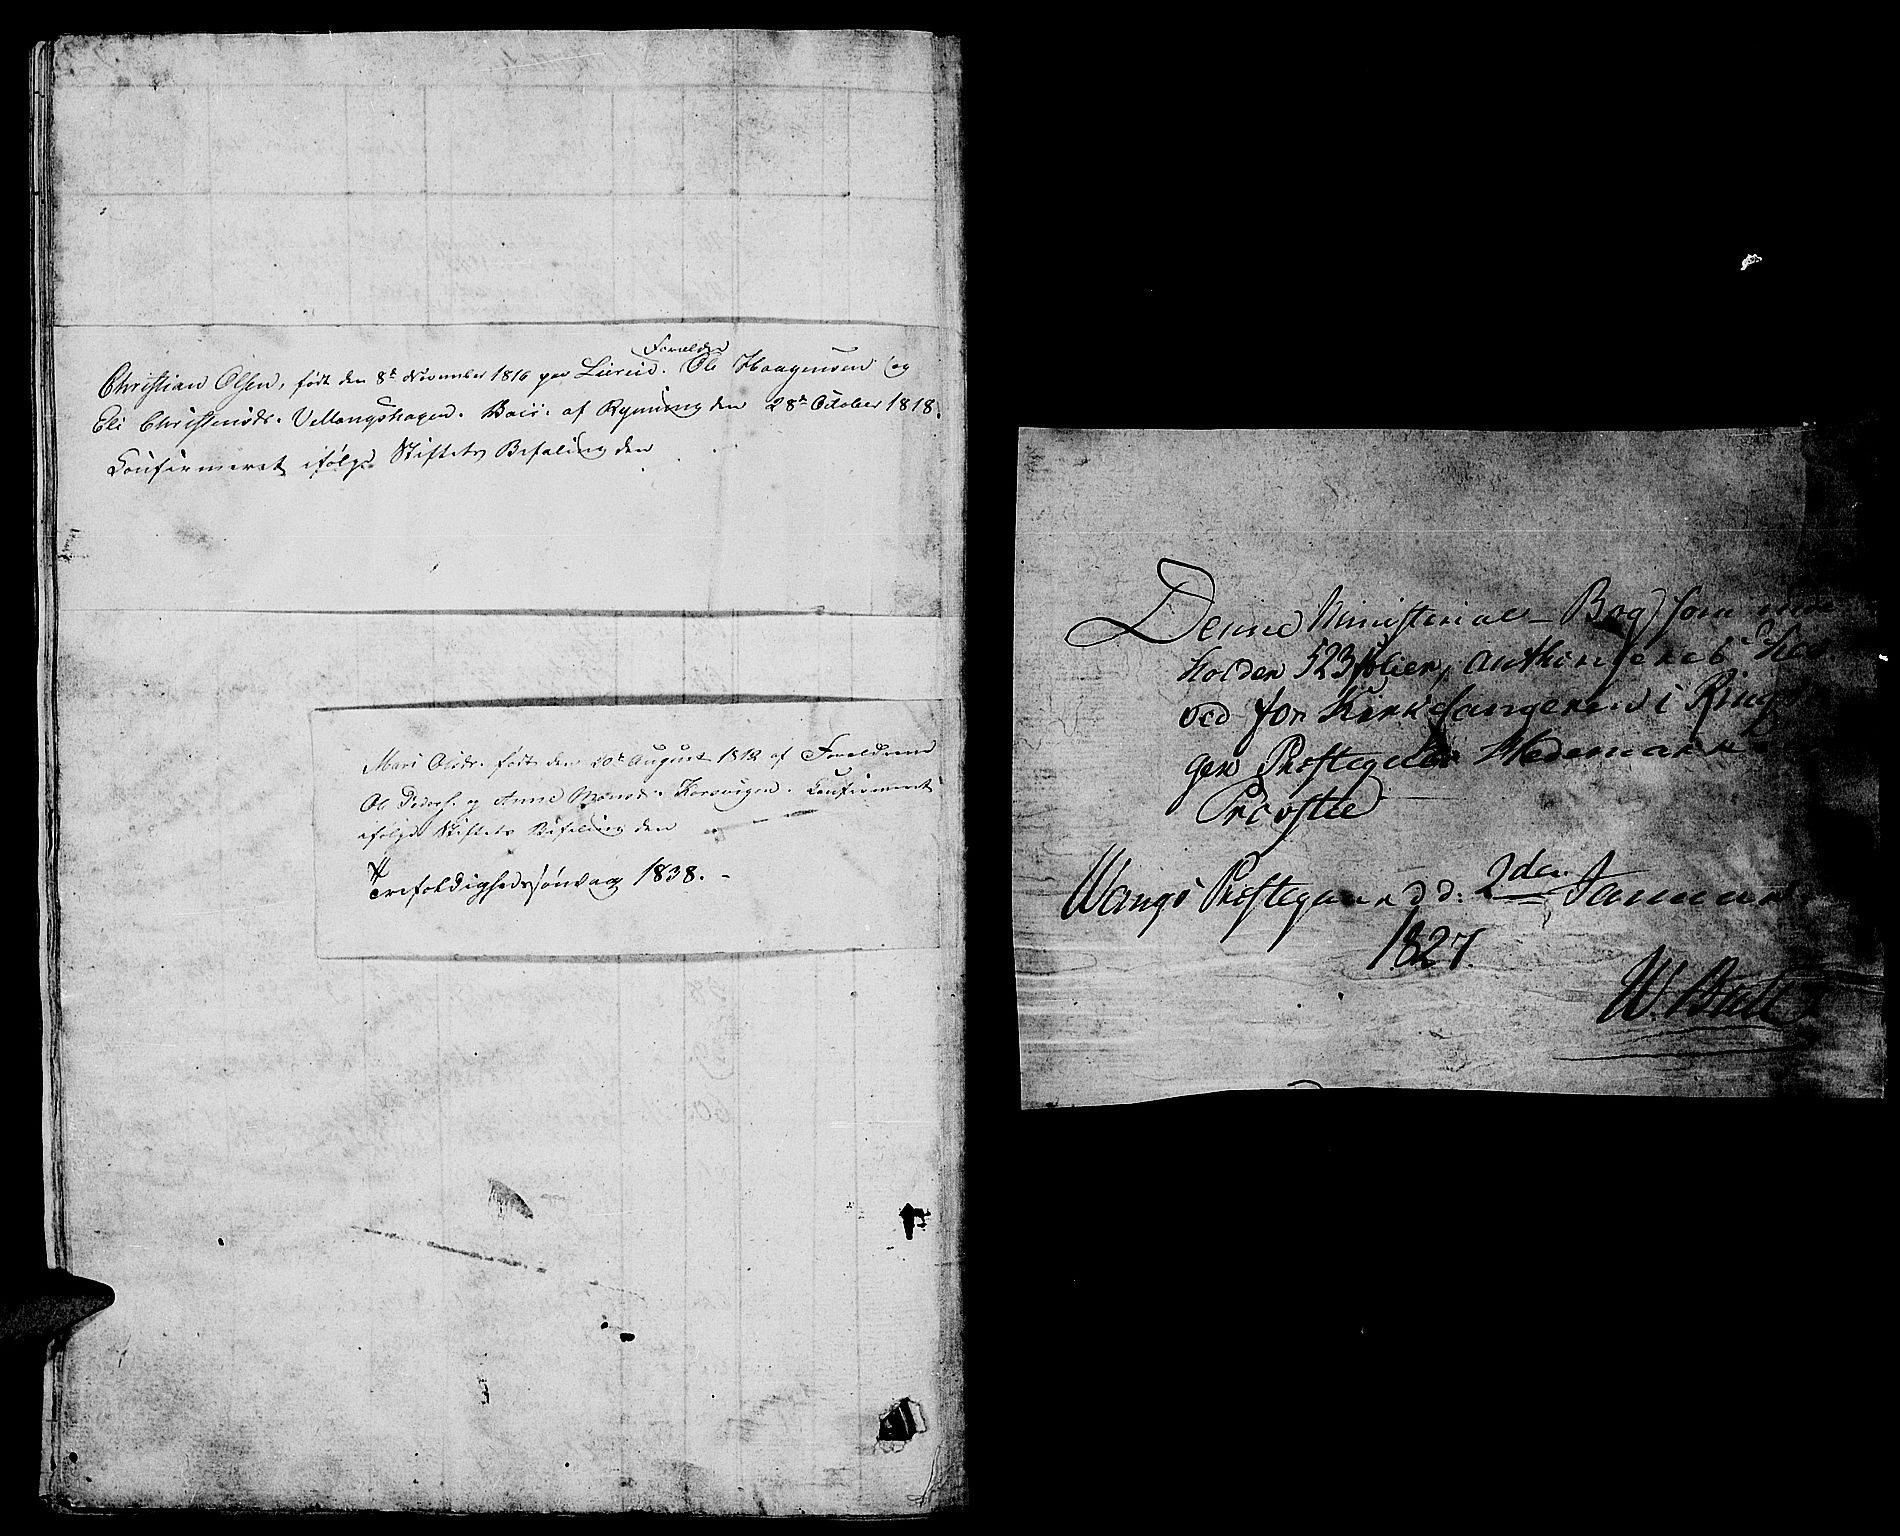 Forældre
Christian Olsen, født den 8de November 1816 paa . Ole Haagensen og
Eli Christensdr. Vellangshagen. Vacc: af Rynning den 28de October 1818.
Confirmeret ifølge Stiftets Befaling den
Mari Olsdr. født den 20de August 1818 af Forældrene
Ole Peders. og Anne . Confirmeret
ifølge Stiftets Befaling den
Trefoldighedssøndag 1838. -
Denne Ministerial-Bog som inde
holder 523 folier, authoriseres her
ved for Kirkesangeren i Ringsa
ger Præstegield Hedemarkens
Provstie
Wangs Præstegaard d: 2den Januari
1827.
W. Bull